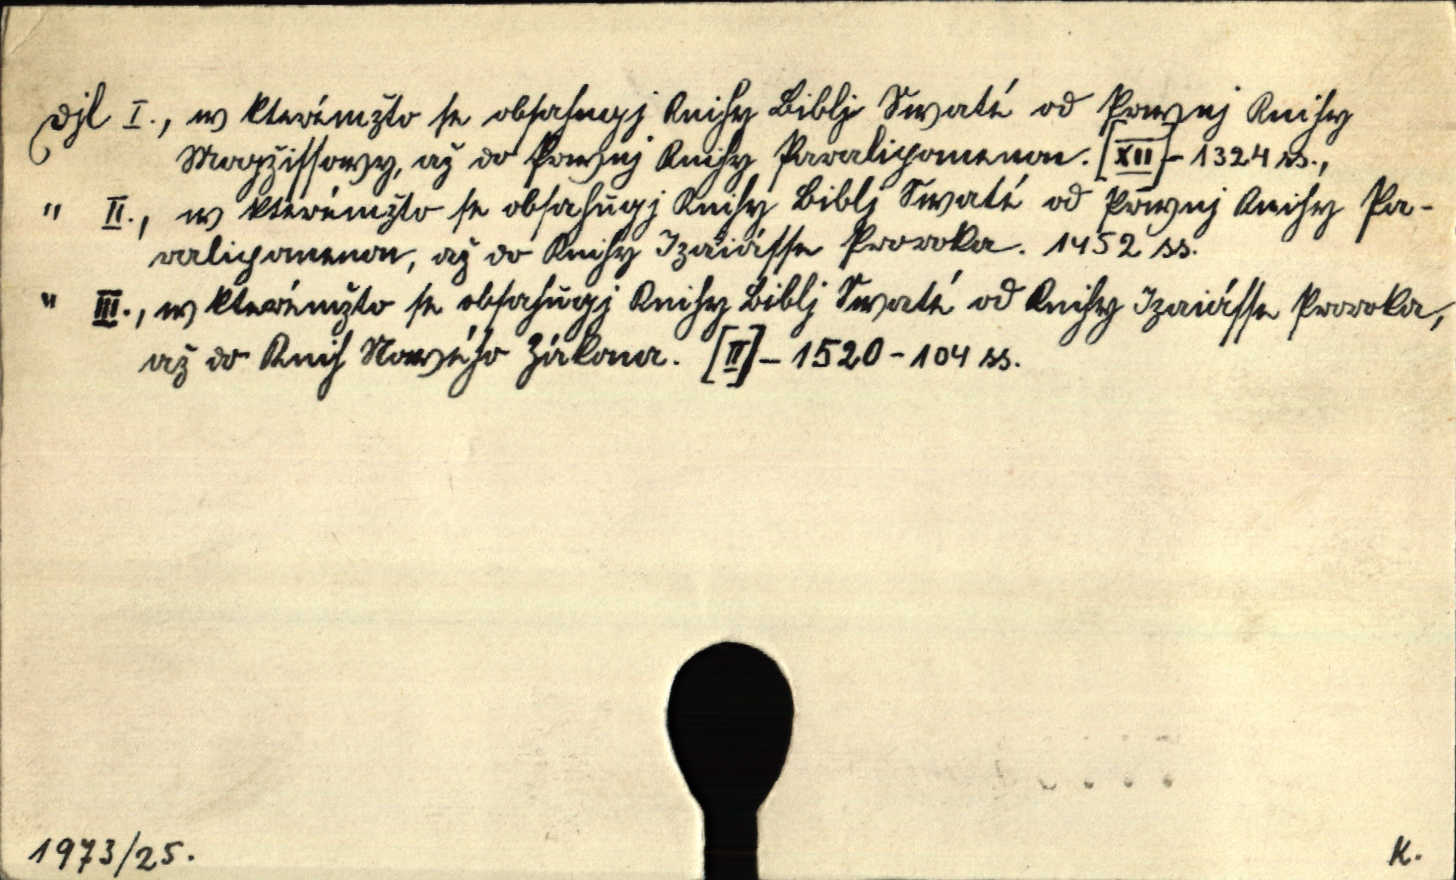 Djl I., w kterémžto se obsahugj Knihy Biblj Swaté od Prwnj Knihy
Mogžissowy, až do Prwnj Knihy Paralipomenon. [XII] - 1324 ss.,
" II., w kterémžto se obsahugj Knihy Biblj Swaté od Prwnj Knihy Pa-
ralipomenon, až do Knihy Izaiásse Proroka. 1452 ss.
" III., w kterémžto se obsahugj Knihy Biblj Swaté od Knihy Izaiásse Proroka,
až do Knih Nowého Zákona. [II] - 1520 - 104 ss.
1973/25.
K.